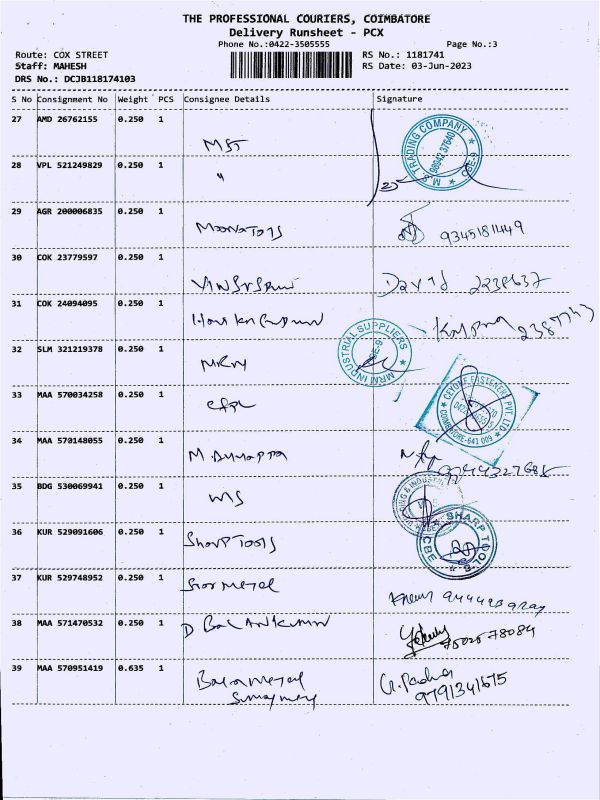 THE PROFESSIONAL COURIERS, COIMBATORE
Delivery Runsheet - PCX
Phone No.:0422-3505555 Page No.:3
Route: COX STREET RS No.: 1181741
Staff: MAHESH RS Date: 03-Jun-2023
DRS No.: DCJB118174103
S No Consignment No Weight PCS Consignee Details Signature
27 AMD 26762155 0.250 1
MST
M.S TRADING COMPANY
98942 37640
CBE-9
28 VPL 521249829 0.250 1
"
29 AGR 200006835 0.250 1
9345181449
30 COK 23779597 0.250 1
David 2238637
31 COK 24094095 0.250 1
Kalpana 2387743
32 SLM 321219378 0.250 1
MRM
MRM INDUSTRIAL SUPPLIERS
CBE-9
33 MAA 570034258 0.250 1
CEYONE FASTENERS PVT. LTD
COIMBATORE-641 009
34 MAA 570148055 0.250 1
35 BDG 530069941 0.250 1
WS
36 KUR 529091606 0.250 1
Sharp Tools
SHARP TOOLS
CBE
37 KUR 529748952 0.250 1
Star Metal
38 MAA 571470532 0.250 1
D BALANKUMAR
7502578084
39 MAA 570951419 0.635 1
Balametal
G. Padma
9791341675